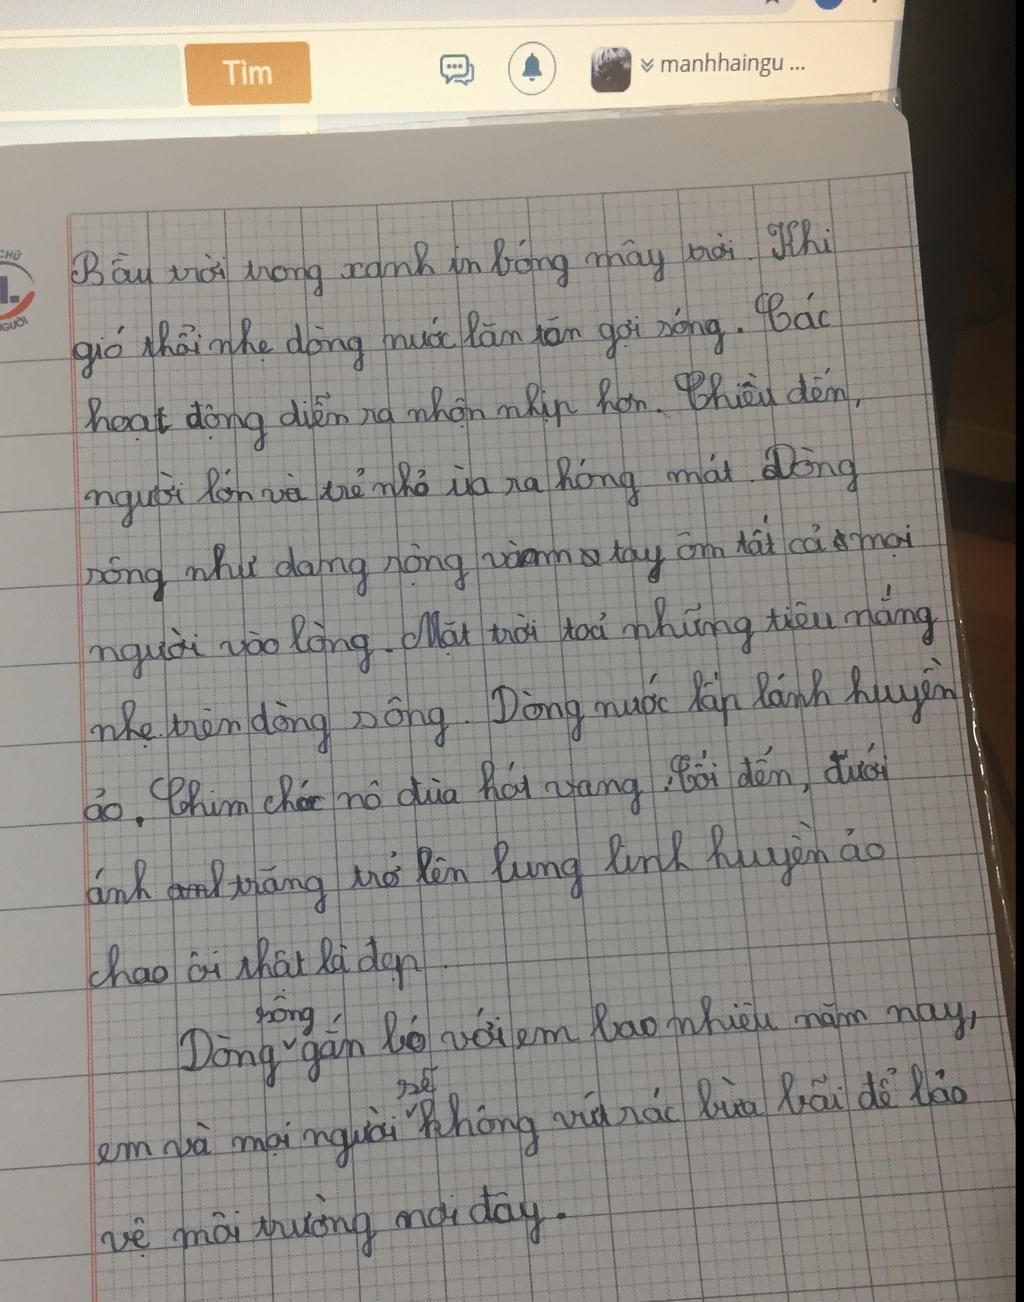 Tìm
manhhaingu ...
CHỮ
L.
NGƯỜI
Bầu trời trong xanh in bóng mây trời. Khi
gió thổi nhẹ dòng nước lăn tăn gợi sóng. Các
hoạt động diễn ra nhộn nhịp hơn. Chiều đến,
người lớn và trẻ nhỏ ùa ra hóng mát. Dòng
sông như dang rộng vòng tay ôm tất cả mọi
người vào lòng. Mặt trời toả những tiêu nắng
nhẹ trên dòng sông. Dòng nước lấp lánh huyền
ảo. Chim chóc nô đùa hót vang. Tối đến, dưới
ánh trăng trở lên lung linh huyền ảo
chao ôi thât là đẹp
Dòng sông gắn bó với em bao nhiêu năm nay,
em và mọi người sẽ không vứt rác bừa bãi để bảo
vệ môi trường nơi đây.